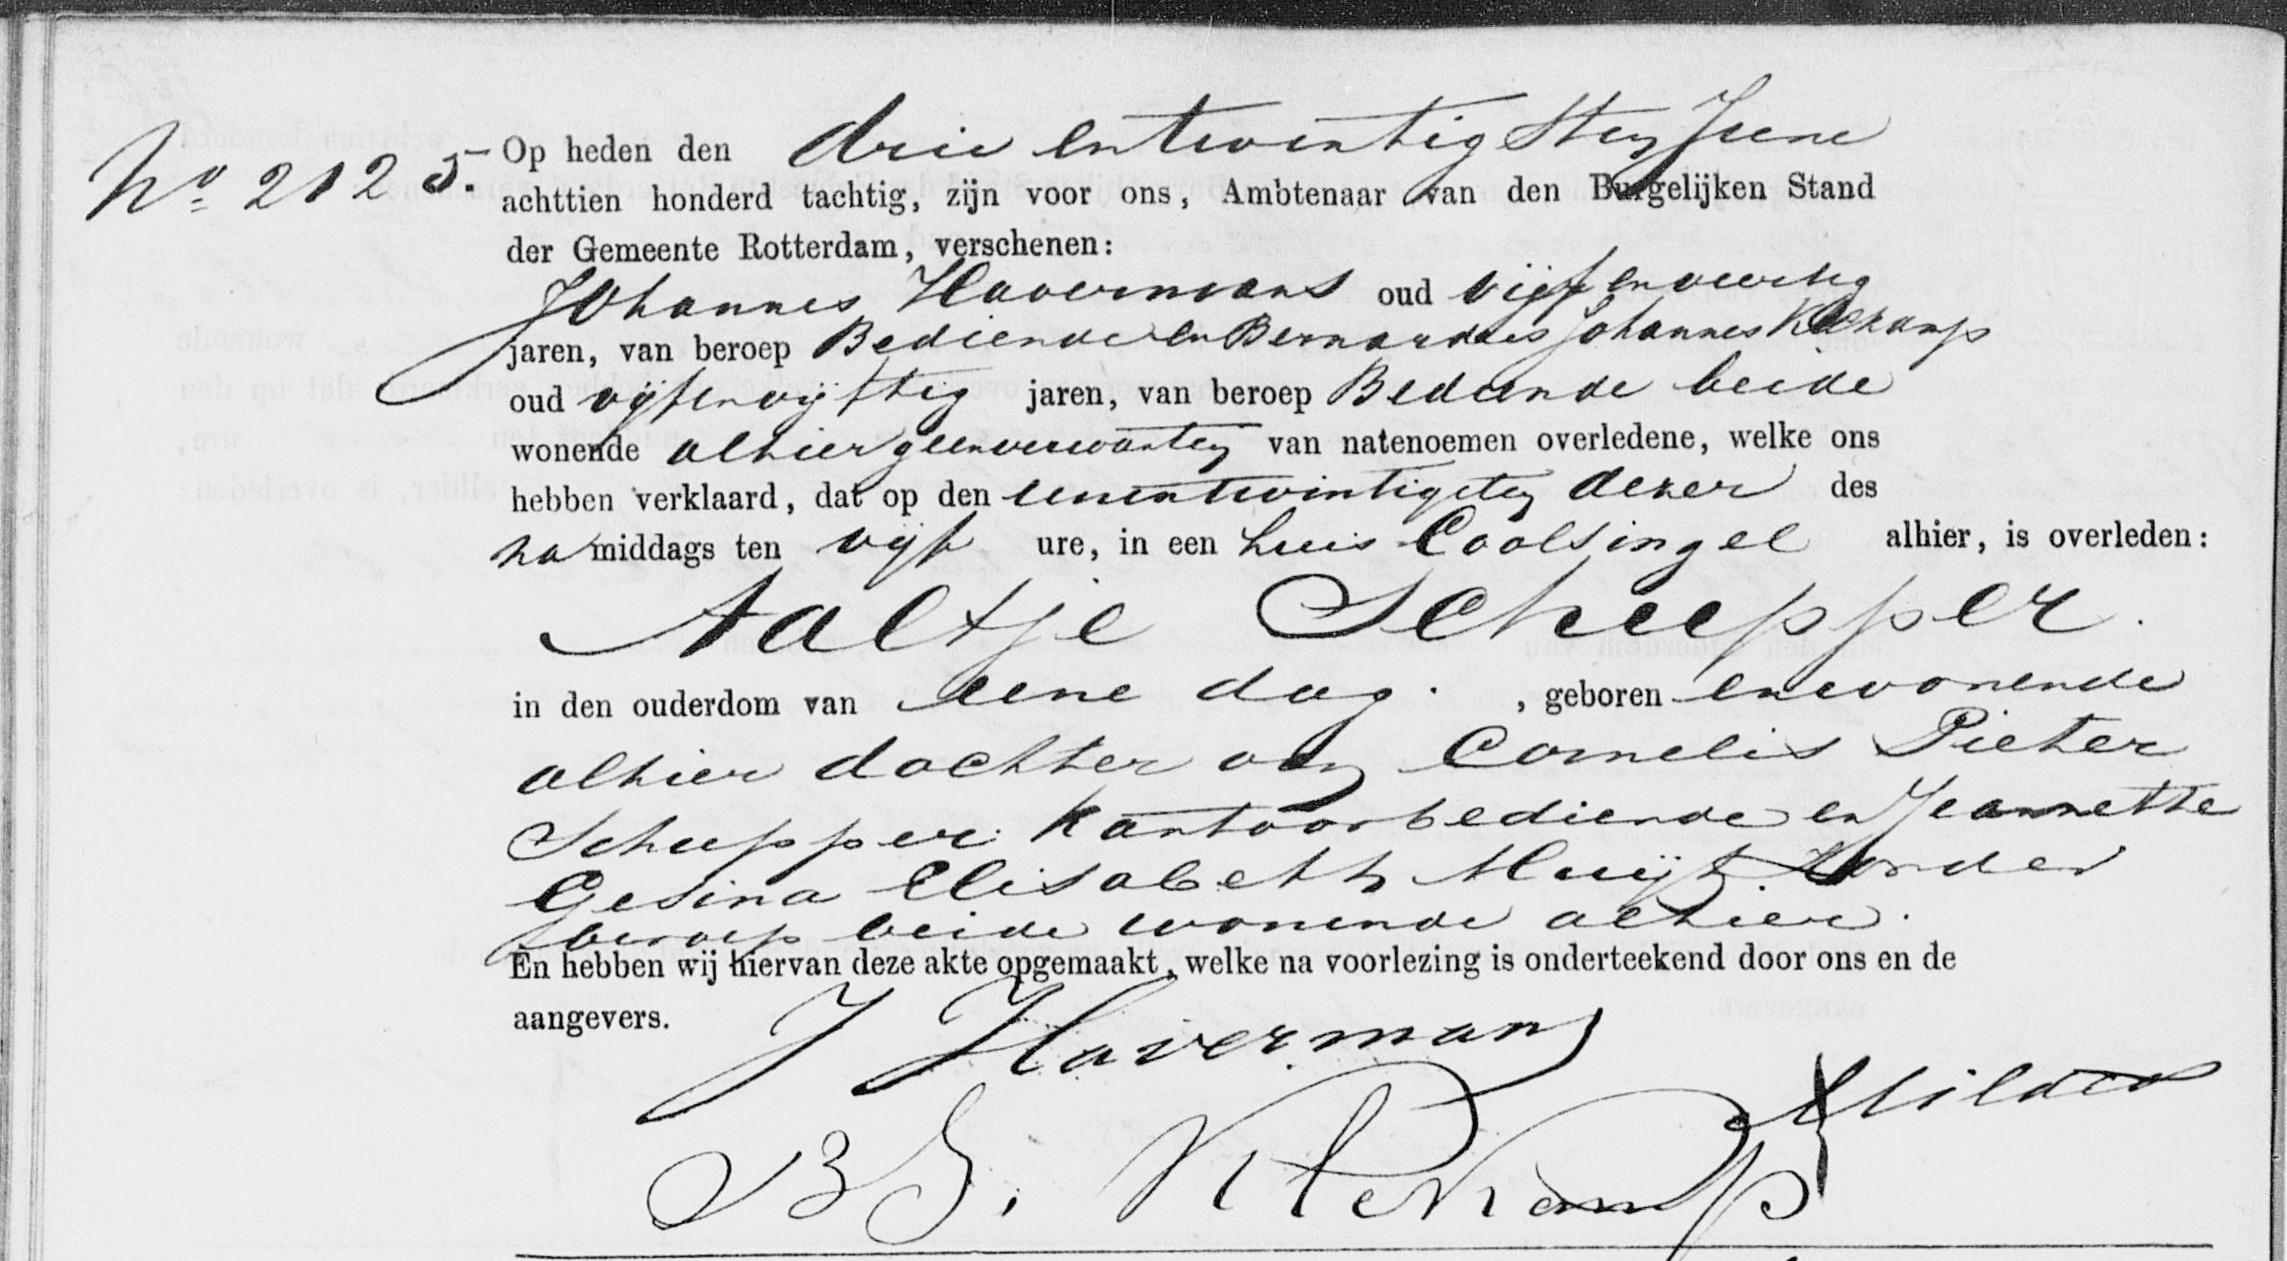 No 2125. Op heden den drie entwintigsten Junij
achttien honderd tachtig, zijn voor ons, Ambtenaar van den Burgelijken Stand
der Gemeente Rotterdam, verschenen:
Johannes Havermans oud vijfenveertig
jaren, van beroep Bediende en Bernardus Johannes Klekamp
oud vijfenvijftig jaren, van beroep Bediende beide
wonende alhier geenverwanten van natenoemen overledene, welke ons
hebben verklaard, dat op den eenentwintigsten dezer des
na middags ten vijf ure, in een huis Coolsingel alhier, is overleden:
Aaltje Schepper.
in den ouderdom van eene dag. , geboren en wonende
alhier dochter van Cornelis Pieter
Schepper kantoorbediende en Jeannette
Gesina Elisabeth Muijt zonder
beroep beide wonende alhier.
En hebben wij hiervan deze akte opgemaakt, welke na voorlezing is onderteekend door ons en de
aangevers.
J Havermans
B J. Klekamp